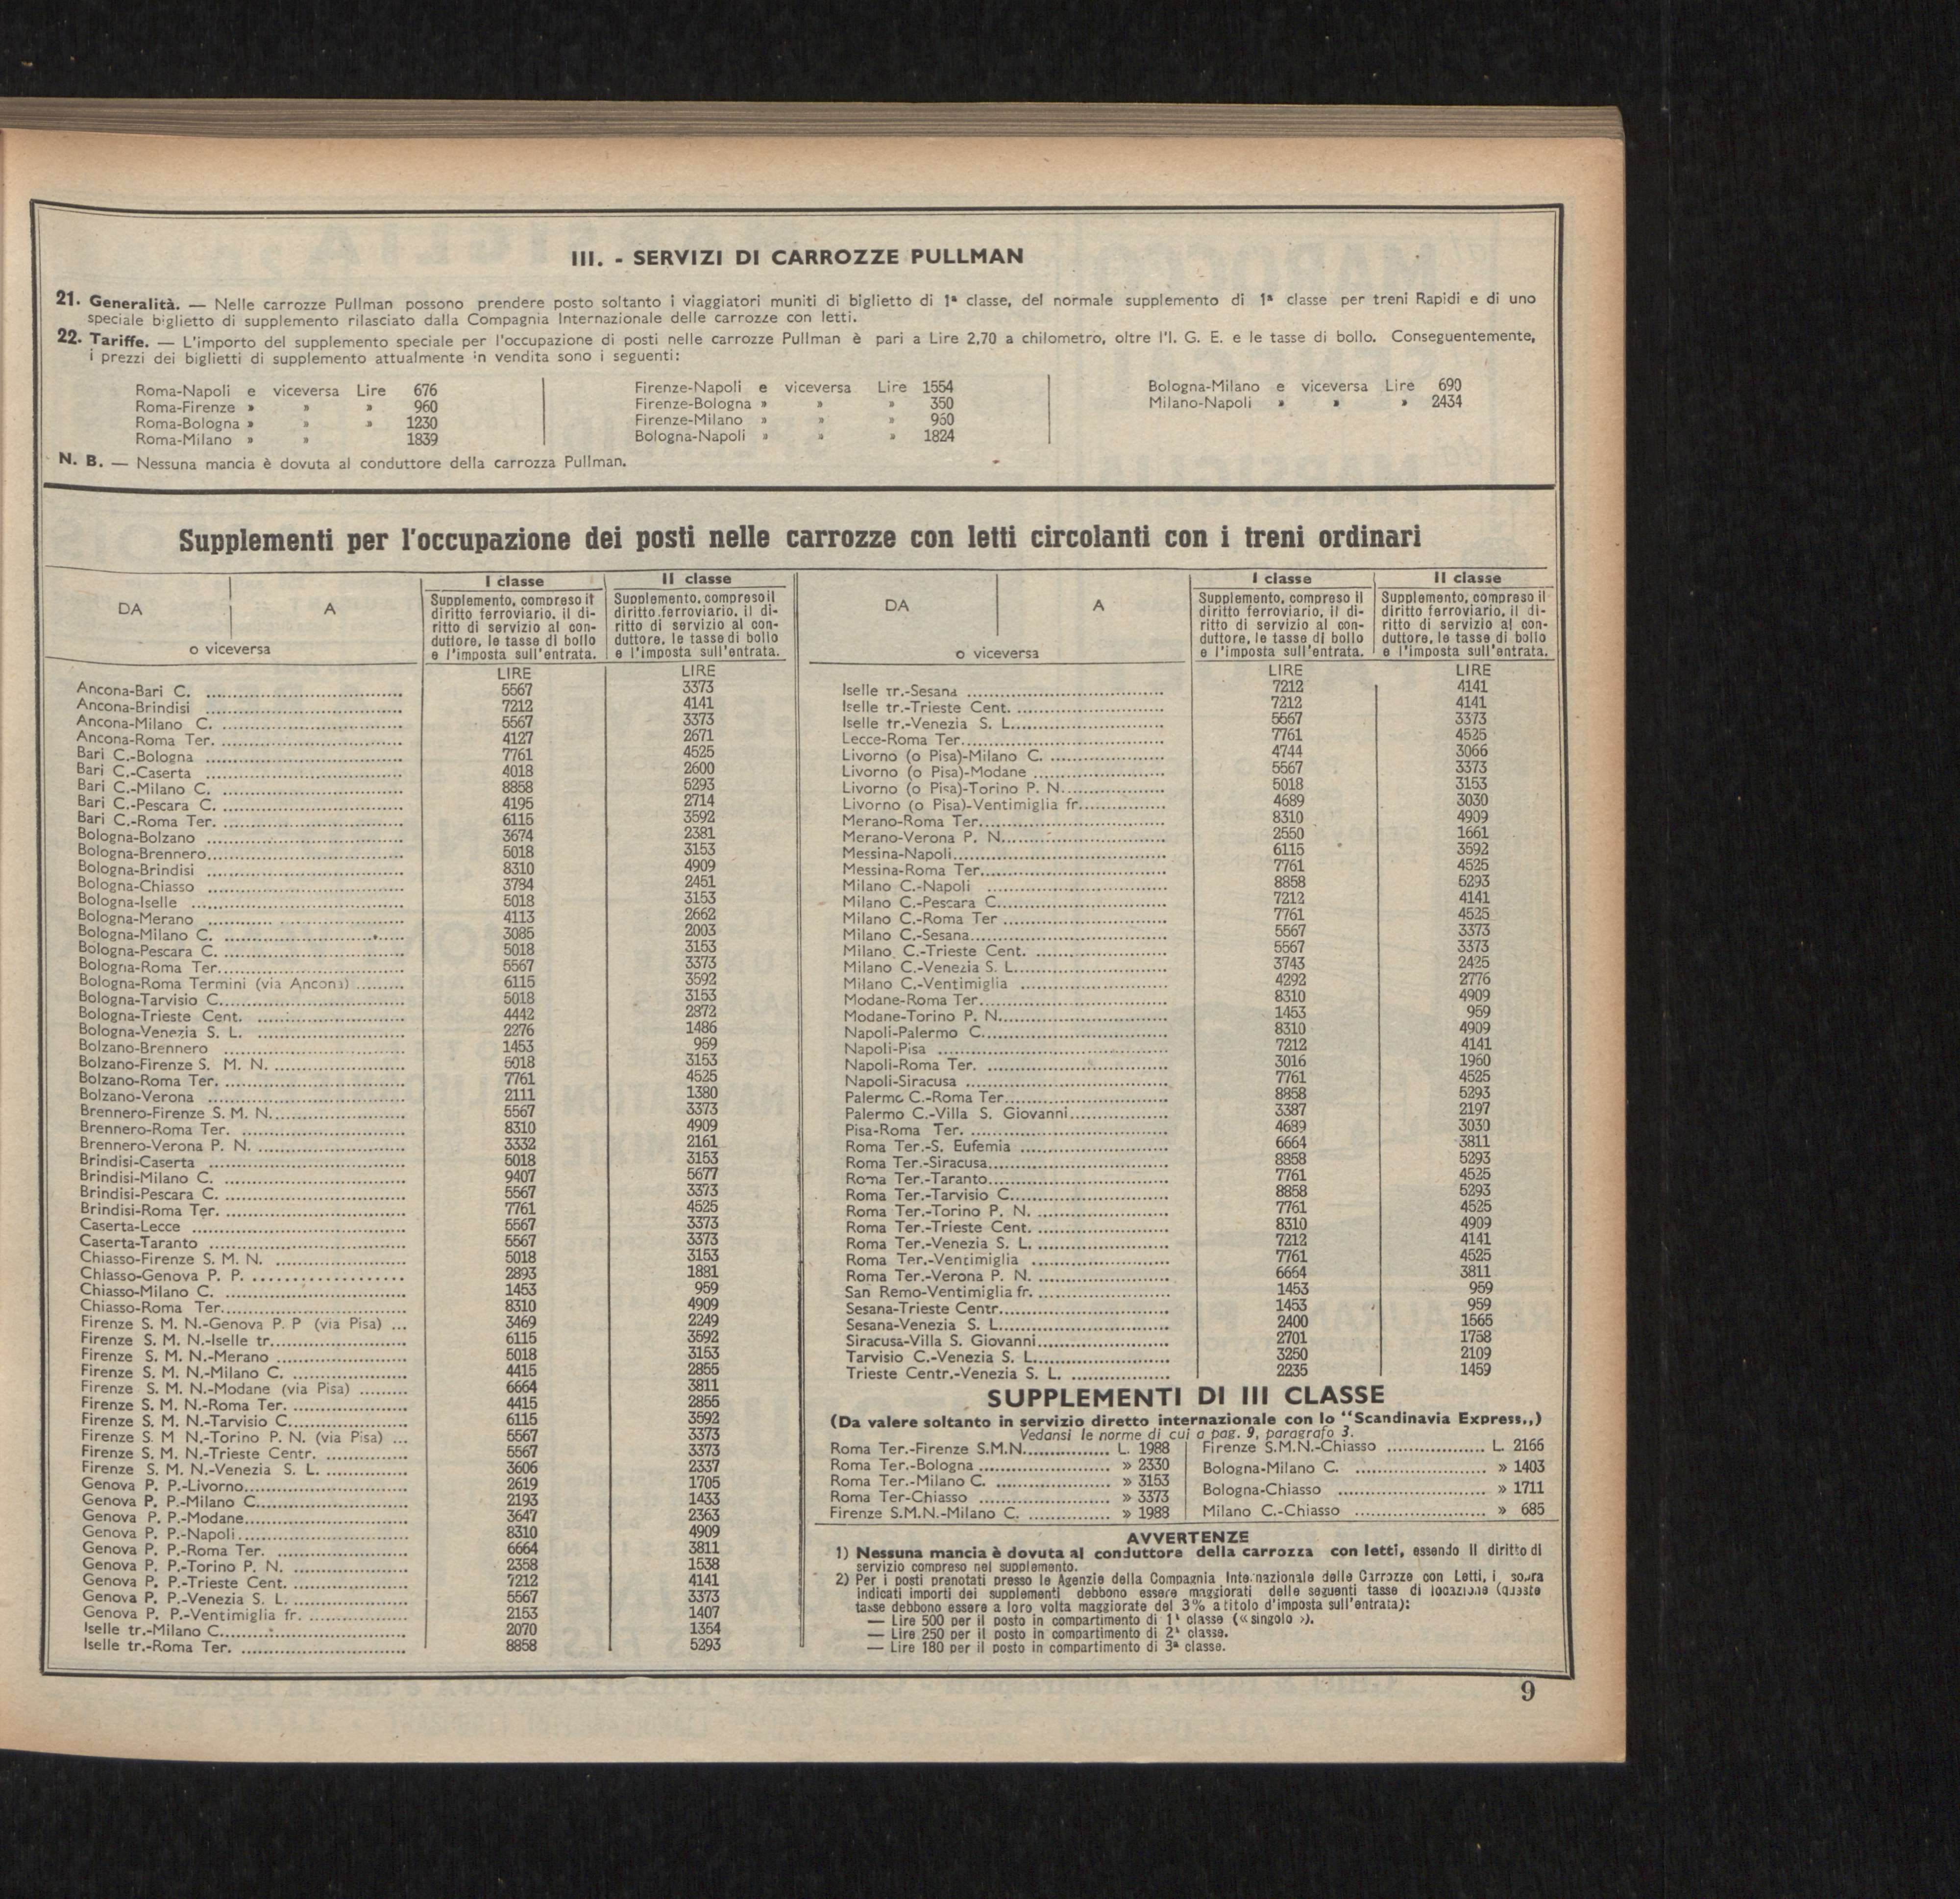 III. - SERVIZI DI CARROZZE PULLMAN
21. Generalità. — Nelle carrozze Pullman possono prendere posto soltanto i viaggiatori muniti di biglietto di 1ª classe, del normale supplemento di 1ª classe per treni Rapidi e di uno
speciale biglietto di supplemento rilasciato dalla Compagnia Internazionale delle carrozze con letti.
22. Tariffe. — L'importo del supplemento speciale per l'occupazione di posti nelle carrozze Pullman è pari a Lire 2,70 a chilometro, oltre l'I. G. E. e le tasse di bollo. Conseguentemente,
i prezzi dei biglietti di supplemento attualmente in vendita sono i seguenti:
Roma-Napoli e viceversa Lire 676
Roma-Firenze » » » 960
Roma-Bologna » » » 1230
Roma-Milano » » 1839
Firenze-Napoli e viceversa Lire 1554
Firenze-Bologna » » » 350
Firenze-Milano » » » 950
Bologna-Napoli » » » 1824
Bologna-Milano e viceversa Lire 690
Milano-Napoli » » » 2434
N. B. — Nessuna mancia è dovuta al conduttore della carrozza Pullman.
Supplementi per l'occupazione dei posti nelle carrozze con letti circolanti con i treni ordinari
DA A
o viceversa
I classe
Supplemento, compreso il
diritto ferroviario, il di-
ritto di servizio al con-
duttore, le tasse di bollo
e l'imposta sull'entrata.
II classe
Supplemento, compreso il
diritto ferroviario, il di-
ritto di servizio al con-
duttore, le tasse di bollo
e l'imposta sull'entrata.
LIRE LIRE
Ancona-Bari C. 5567 3373
Ancona-Brindisi 7212 4141
Ancona-Milano C. 5567 3373
Ancona-Roma Ter. 4127 2671
Bari C.-Bologna 7761 4525
Bari C.-Caserta 4018 2600
Bari C.-Milano C. 8858 5293
Bari C.-Pescara C. 4195 2714
Bari C.-Roma Ter. 6115 3592
Bologna-Bolzano 3674 2381
Bologna-Brennero 5018 3153
Bologna-Brindisi 8310 4909
Bologna-Chiasso 3784 2451
Bologna-Iselle 5018 3153
Bologna-Merano 4113 2662
Bologna-Milano C. 3085 2003
Bologna-Pescara C. 5018 3153
Bologna-Roma Ter. 5567 3373
Bologna-Roma Termini (via Ancona) 6115 3592
Bologna-Tarvisio C. 5018 3153
Bologna-Trieste Cent. 4442 2872
Bologna-Venezia S. L. 2276 1486
Bolzano-Brennero 1453 959
Bolzano-Firenze S. M. N. 5018 3153
Bolzano-Roma Ter. 7761 4525
Bolzano-Verona 2111 1380
Brennero-Firenze S. M. N. 5567 3373
Brennero-Roma Ter. 8310 4909
Brennero-Verona P. N. 3332 2161
Brindisi-Caserta 5018 3153
Brindisi-Milano C. 9407 5677
Brindisi-Pescara C. 5567 3373
Brindisi-Roma Ter. 7761 4525
Caserta-Lecce 5567 3373
Caserta-Taranto 5567 3373
Chiasso-Firenze S. M. N. 5018 3153
Chiasso-Genova P. P. 2893 1881
Chiasso-Milano C. 1453 959
Chiasso-Roma Ter. 8310 4909
Firenze S. M. N.-Genova P. P (via Pisa) ... 3469 2249
Firenze S. M. N.-Iselle tr. 6115 3592
Firenze S. M. N.-Merano 5018 3153
Firenze S. M. N.-Milano C. 4415 2855
Firenze S. M. N.-Modane (via Pisa) 6664 3811
Firenze S. M. N.-Roma Ter. 4415 2855
Firenze S. M. N.-Tarvisio C. 6115 3592
Firenze S. M N.-Torino P. N. (via Pisa) ... 5567 3373
Firenze S. M. N.-Trieste Centr. 5567 3373
Firenze S. M. N.-Venezia S. L. 3606 2337
Genova P. P.-Livorno 2619 1705
Genova P. P.-Milano C. 2193 1433
Genova P. P.-Modane 3647 2363
Genova P. P.-Napoli 8310 4909
Genova P. P.-Roma Ter. 6664 3811
Genova P. P.-Torino P. N. 2358 1538
Genova P. P.-Trieste Cent. 7212 4141
Genova P. P.-Venezia S. L. 5567 3373
Genova P. P.-Ventimiglia fr. 2153 1407
Iselle tr.-Milano C. 2070 1354
Iselle tr.-Roma Ter. 8858 5293
DA A
o viceversa
I classe
Supplemento, compreso il
diritto ferroviario, il di-
ritto di servizio al con-
duttore, le tasse di bollo
e l'imposta sull'entrata.
II classe
Supplemento, compreso il
diritto ferroviario, il di-
ritto di servizio al con-
duttore, le tasse di bollo
e l'imposta sull'entrata.
LIRE LIRE
Iselle tr.-Sesana 7212 4141
Iselle tr.-Trieste Cent. 7212 4141
Iselle tr.-Venezia S. L. 5567 3373
Lecce-Roma Ter. 7761 4525
Livorno (o Pisa)-Milano C. 4744 3066
Livorno (o Pisa)-Modane 5567 3373
Livorno (o Pisa)-Torino P. N. 5018 3153
Livorno (o Pisa)-Ventimiglia fr. 4689 3030
Merano-Roma Ter. 8310 4909
Merano-Verona P. N. 2550 1661
Messina-Napoli 6115 3592
Messina-Roma Ter. 7761 4525
Milano C.-Napoli 8858 5293
Milano C.-Pescara C. 7212 4141
Milano C.-Roma Ter 7761 4525
Milano C.-Sesana 5567 3373
Milano C.-Trieste Cent. 5567 3373
Milano C.-Venezia S. L. 3743 2425
Milano C.-Ventimiglia 4292 2776
Modane-Roma Ter. 8310 4909
Modane-Torino P. N. 1453 959
Napoli-Palermo C. 8310 4909
Napoli-Pisa 7212 4141
Napoli-Roma Ter. 3016 1960
Napoli-Siracusa 7761 4525
Palermo C.-Roma Ter. 8858 5293
Palermo C.-Villa S. Giovanni 3387 2197
Pisa-Roma Ter. 4689 3030
Roma Ter.-S. Eufemia 6664 3811
Roma Ter.-Siracusa 8858 5293
Roma Ter.-Taranto 7761 4525
Roma Ter.-Tarvisio C. 8858 5293
Roma Ter.-Torino P. N. 7761 4525
Roma Ter.-Trieste Cent. 8310 4909
Roma Ter.-Venezia S. L. 7212 4141
Roma Ter.-Ventimiglia 7761 4525
Roma Ter.-Verona P. N. 6664 3811
San Remo-Ventimiglia fr. 1453 959
Sesana-Trieste Centr. 1453 959
Sesana-Venezia S. L. 2400 1565
Siracusa-Villa S. Giovanni 2701 1758
Tarvisio C.-Venezia S. L. 3250 2109
Trieste Centr.-Venezia S. L. 2235 1459
SUPPLEMENTI DI III CLASSE
(Da valere soltanto in servizio diretto internazionale con lo "Scandinavia Express,,)
Vedansi le norme di cui a pag. 9, paragrafo 3.
Roma Ter.-Firenze S.M.N. L. 1988
Roma Ter.-Bologna » 2330
Roma Ter.-Milano C. » 3153
Roma Ter-Chiasso » 3373
Firenze S.M.N.-Milano C. » 1988
Firenze S.M.N.-Chiasso L. 2166
Bologna-Milano C. » 1403
Bologna-Chiasso » 1711
Milano C.-Chiasso » 685
AVVERTENZE
1) Nessuna mancia è dovuta al conduttore della carrozza con letti, essendo il diritto di
servizio compreso nel supplemento.
2) Per i posti prenotati presso le Agenzie della Compagnia Internazionale delle Carrozze con Letti, i sopra
indicati importi dei supplementi debbono essere maggiorati delle seguenti tasse di locazione (queste
tasse debbono essere a loro volta maggiorate del 3% a titolo d'imposta sull'entrata):
— Lire 500 per il posto in compartimento di 1ª classe («singolo»).
— Lire 250 per il posto in compartimento di 2ª classe.
— Lire 180 per il posto in compartimento di 3ª classe.
9